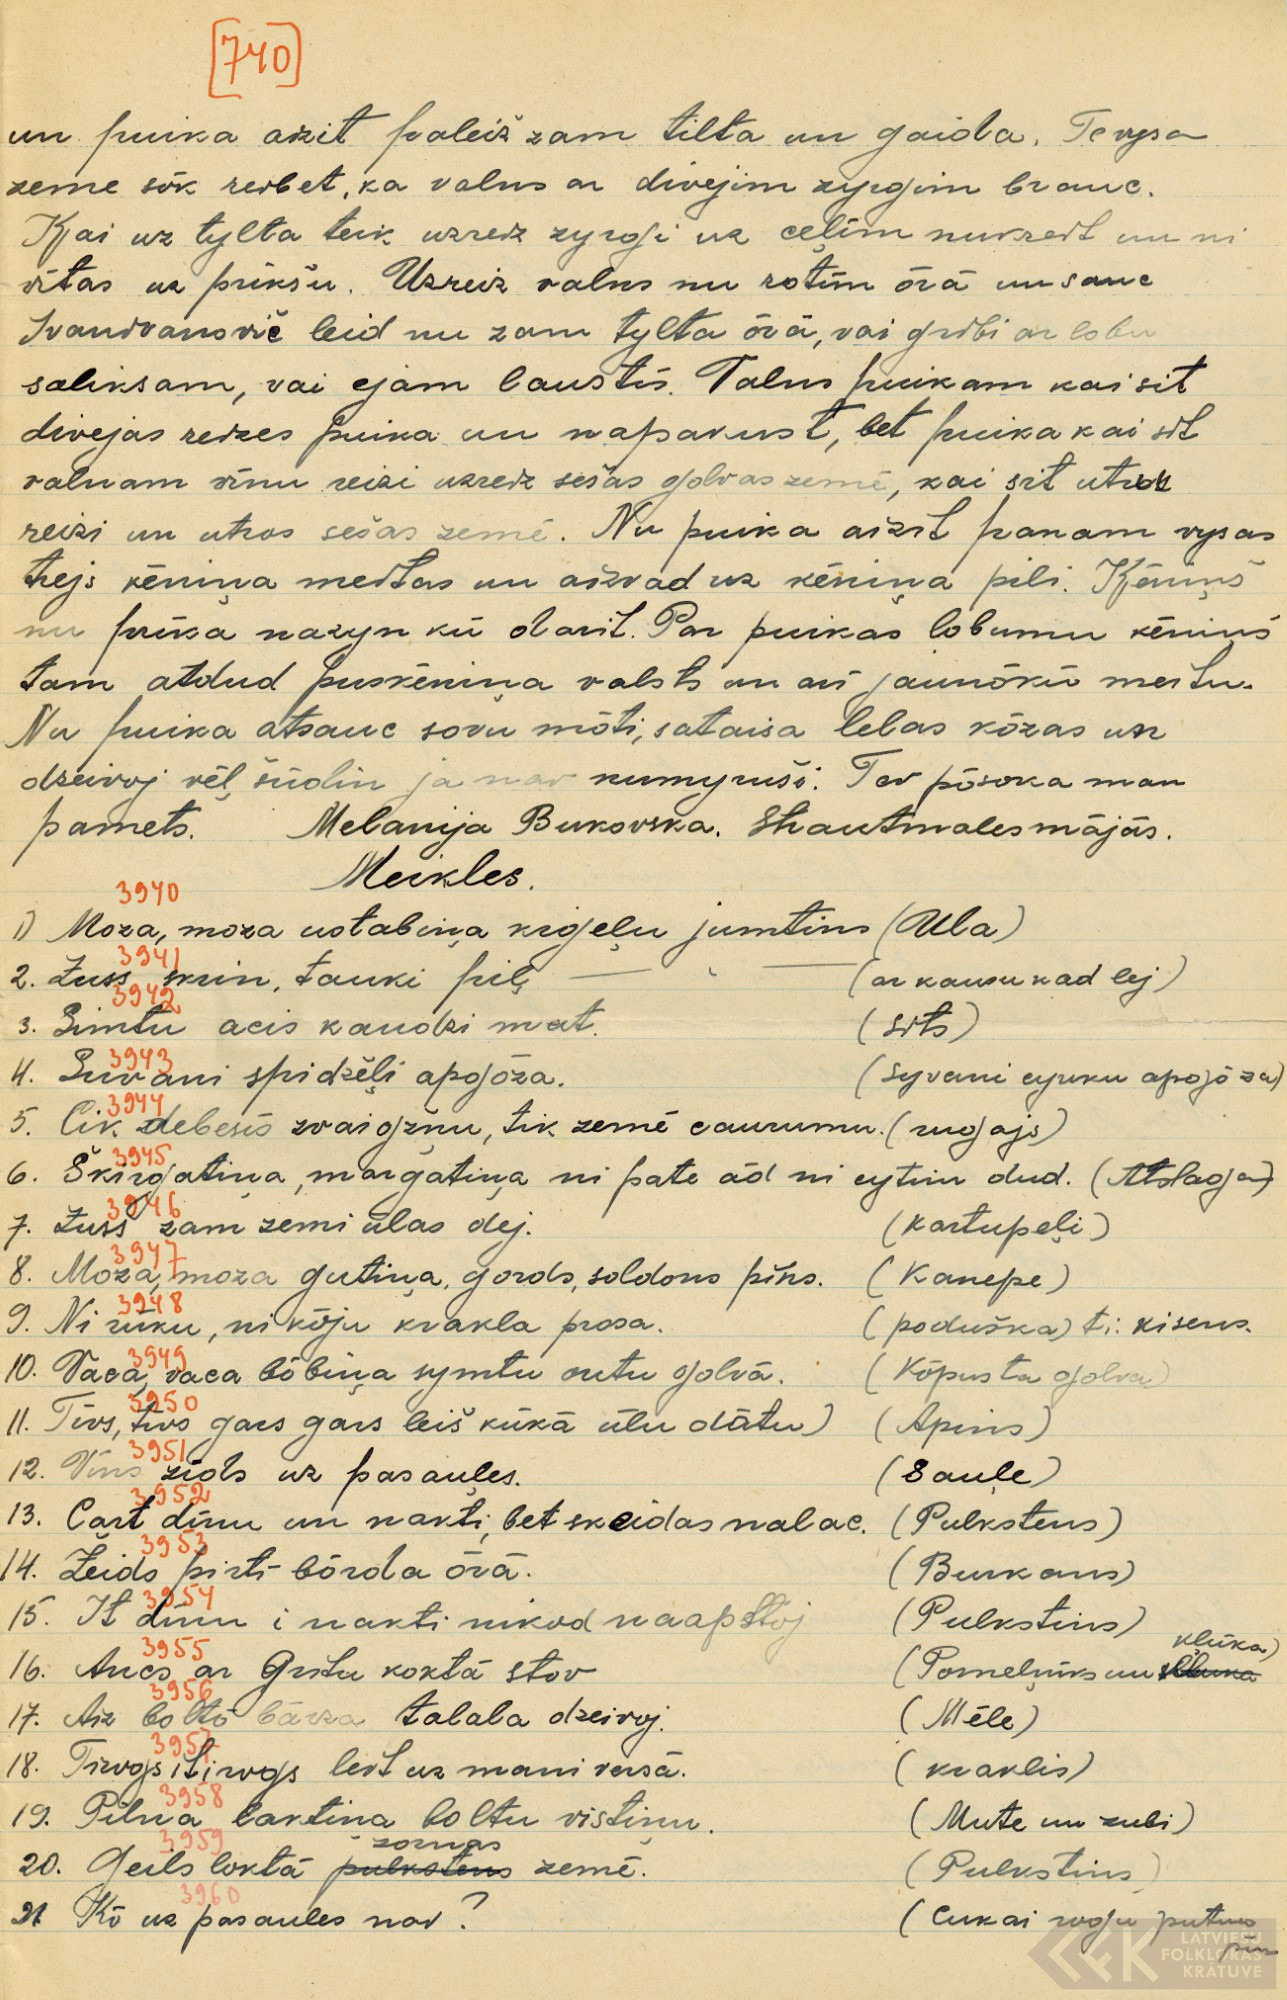 [740]
un puika aizit paleiž zam tilta un gaida. Te vysa
zeme sōk reibet, ka valns ar divejim zyrgim brauc.
Kai uz tylta teik uzreiz zyrgi uz ceļim nukreit un ni
vītas uz prikšu. Uzreiz valns nu rotim ōrā un sauc
Ivanivanovič leid nu zam tylta ōrā, vai gribi ar lobu
saliksam, vai ejam laustīs. Talns puikam kai sit
divejas reizes puika un napakust, bet puika kai sit
valnam vīnu reizi uzreiz sešas golvas zemē, kai sit utru
reizi un utros sešas zemē. Nu puika aizit panam vysas
trejs kēniņa meitas un aizvad uz kēniņa pili. Kēniņš
nu prika nazyn kū dorit. Par puikas lobumu kēniņš
tam atdud puskēniņa valsts un arī jaunōkū meitu.
Nu puika atsauc sovu mōti, sataisa lelas kōzas un
dzeivoj vēļ šudin ja nav numyruši. Tev pōsoka man
pamets. Melanija Bukovska. Shautmales mājās.
Meikles.
3940
1) Moza, moza ustabiņa kigeļu jumtins (Ula)
3941
2. Zuss skrin, tauki piļ — " — (ar kausu kad lej)
3942
3. Simtu acis kaudzi mat. (sits)
3943
4. Suvani spidzēļi apgōza. (Syvani cyuku apgōza)
3944
5. Cik debesīs zvaigžņu, tik zemē caurumu. (rugajs)
3945
6. Škirgatiņa, margatiņa ni pate ād ni cytim dud. (Atslaga)
3946
7. Zuss zam zemi ūlas dej. (kartupeļi)
3947
8. Moza, moza gutiņa, gords, soldons pīns. (Kanepe)
3948
9. Ni rūku, ni kōju krakla prosa. (poduška) t.i. kisens.
3949
10. Vaca, vaca bōbiņa symtu outu golvā. (Kōpusta golva)
3950
11. Tīvs, tīvs gars gars leiš kūkā ūlu dātu) (Apins)
3951
12. Vīns zīds uz pasauļes. (Sauļe)
3952
13. Cart dīnu un nakti, bet skaidas nalac. (Pulkstens)
3953
14. Žeids pirtī bōrda ōrā. (Burkans)
3954
15. It dīnu i nakti nikod naapstōj (Pulkstins)
3955
16. Ancs ar Gritu koktā stov (Pomeļniks un kļūka)
3956
17. Aiz boltō bārza talala dzeivoj. (Mēle)
3957
18. Tirogs, tirogs leit uz mani versā. (kraklis)
3958
19. Pilna laktiņa boltu vistiņu. (Mute un zubi)
3959
20. Geils loktā pulkstens zornas zemē. (Pulkstins)
3960
21 Kō uz pasaules nav? (Cukai rogu putnu
pīn
LATVIEŠU
FOLKLORAS
KRĀTUVE